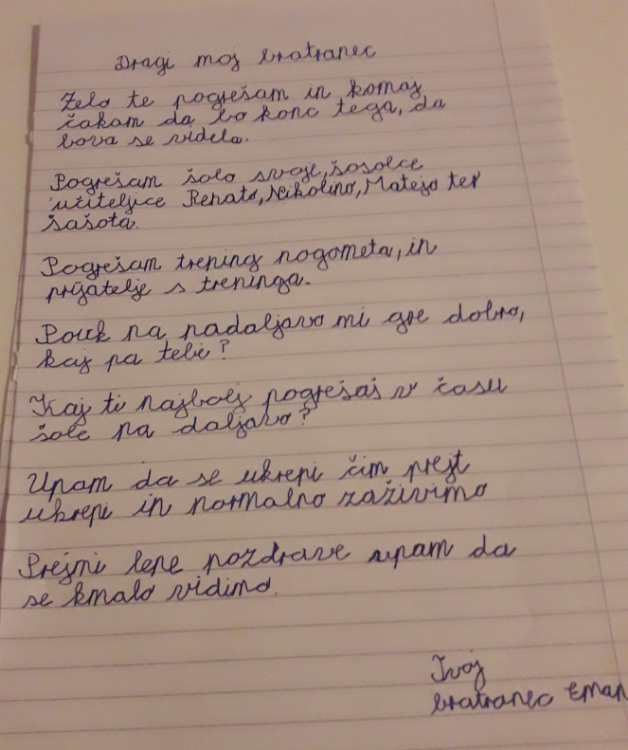 Dragi moj bratranec
Zelo te pogrešam in komaj
čakam da bo konc tega, da
bova se videla.
Pogrešam šolo svoje, šosolce
učiteljice Renato, Nikolino, Matejo ter
šašota.
Pogrešam trening nogometa, in
prijatelje s treninga.
Pouk na nadaljavo mi gre dobro,
kaj pa tebi?
Kaj ti najbolj pogrešaš v času
šole na daljavo?
Upam da se ukrepi čim prejt
ukrepi in normalno zaživimo
Prejmi lepe pozdrave upam da
se kmalo vidimo.
Tvoj
bratranec Eman